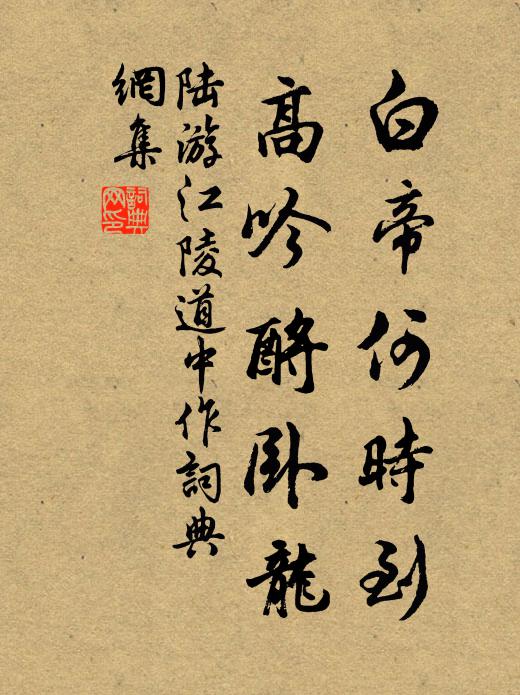 白帝何時到
高吟酹卧龍
陆游江陵道中作詞典
網集
詞典網印